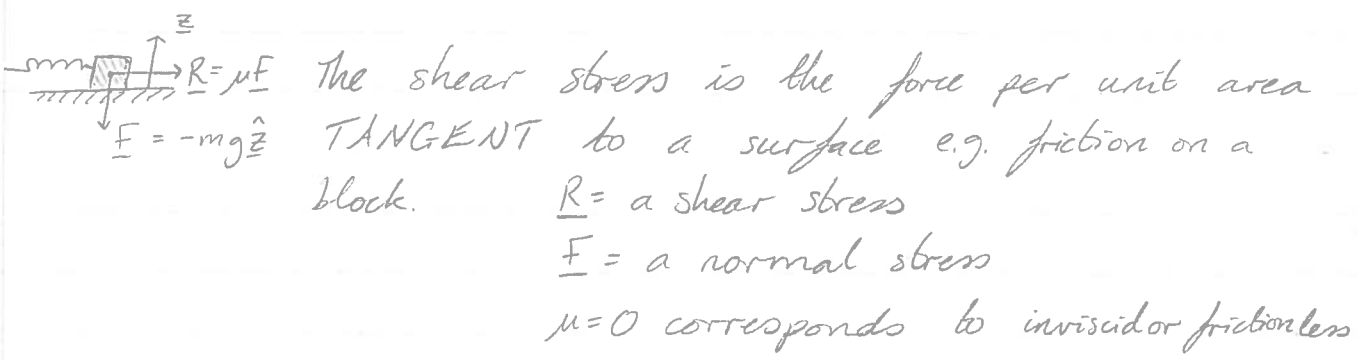 z
R = μF The shear stress is the force per unit area
F = -mgẑ TANGENT to a surface e.g. friction on a
block. R = a shear stress
F = a normal stress
μ=0 corresponds to inviscid or frictionless